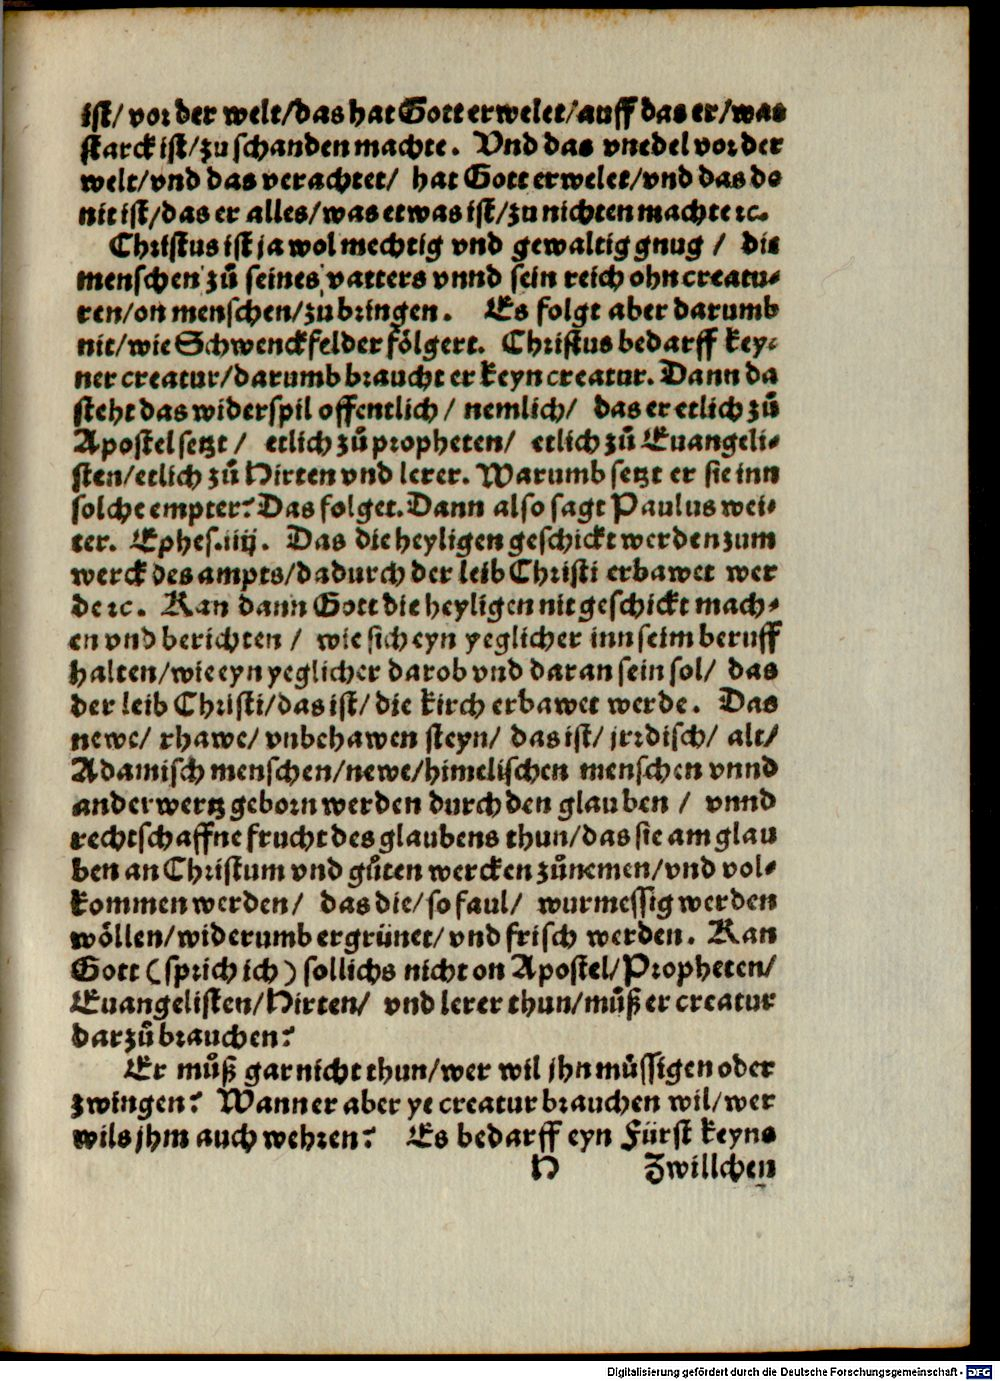 ist/ vor der welt/das hat Gott erwelet/auff das er/was
starck ist/zu schanden machte. Vnd das vnedel vor der
welt/vnd das verachtet/ hat Gott erwelet/vnd das do
nit ist/das er alles/was etwas ist/zu nichten machte ꝛc.
Christus ist ja wol mechtig vnd gewaltig gnug / die
menschen zů seines vatters vnnd sein reich ohn creatu-
ren/on menschen/zubringen. Es folgt aber darumb
nit/wie Schwenckfelder fölgert. Christus bedarff key-
ner creatur/darumb braucht er keyn creatur. Dann da
steht das widerspil offentlich / nemlich/ das er etlich zů
Apostel setzt / etlich zů propheten/ etlich zů Euangeli-
sten/etlich zů Hirten vnd lerer. Warumb setzt er sie inn
solche empter? Das folget. Dann also sagt Paulus wei-
ter. Ephes.iiij. Das die heyligen geschickt werden zum
werck des ampts/dadurch der leib Christi erbawet wer
de ꝛc. Kan dann Gott die heyligen nit geschickt mach-
en vnd berichten / wie sich eyn yeglicher inn seim beruff
halten/wie eyn yeglicher darob vnd daran sein sol/ das
der leib Christi/das ist/ die kirch erbawet werde. Das
newe/ rhawe/ vnbehawen steyn/ das ist/ jrrdisch/ alt/
Adamisch menschen/newe/himelischen menschen vnnd
anderwertz geborn werden durch den glauben / vnnd
rechtschaffne frucht des glaubens thun/das sie am glau
ben an Christum vnd gůten wercken zůnemen/vnd vol-
kommen werden/ das die/so faul/ wurmessig werden
wöllen/widerumb ergrünet/vnd frisch werden. Kan
Gott (sprich ich) sollichs nicht on Apostel/Propheten/
Euangelisten/Hirten/ vnd lerer thun/můß er creatur
darzů brauchen?
Er můß gar nicht thun/wer wil jhn müssigen oder
zwingen? Wann er aber ye creatur brauchen wil/wer
wils jhm auch wehren? Es bedarff eyn Fürst keyns
H Zwillchen
Digitalisierung gefördert durch die Deutsche Forschungsgemeinschaft - DFG